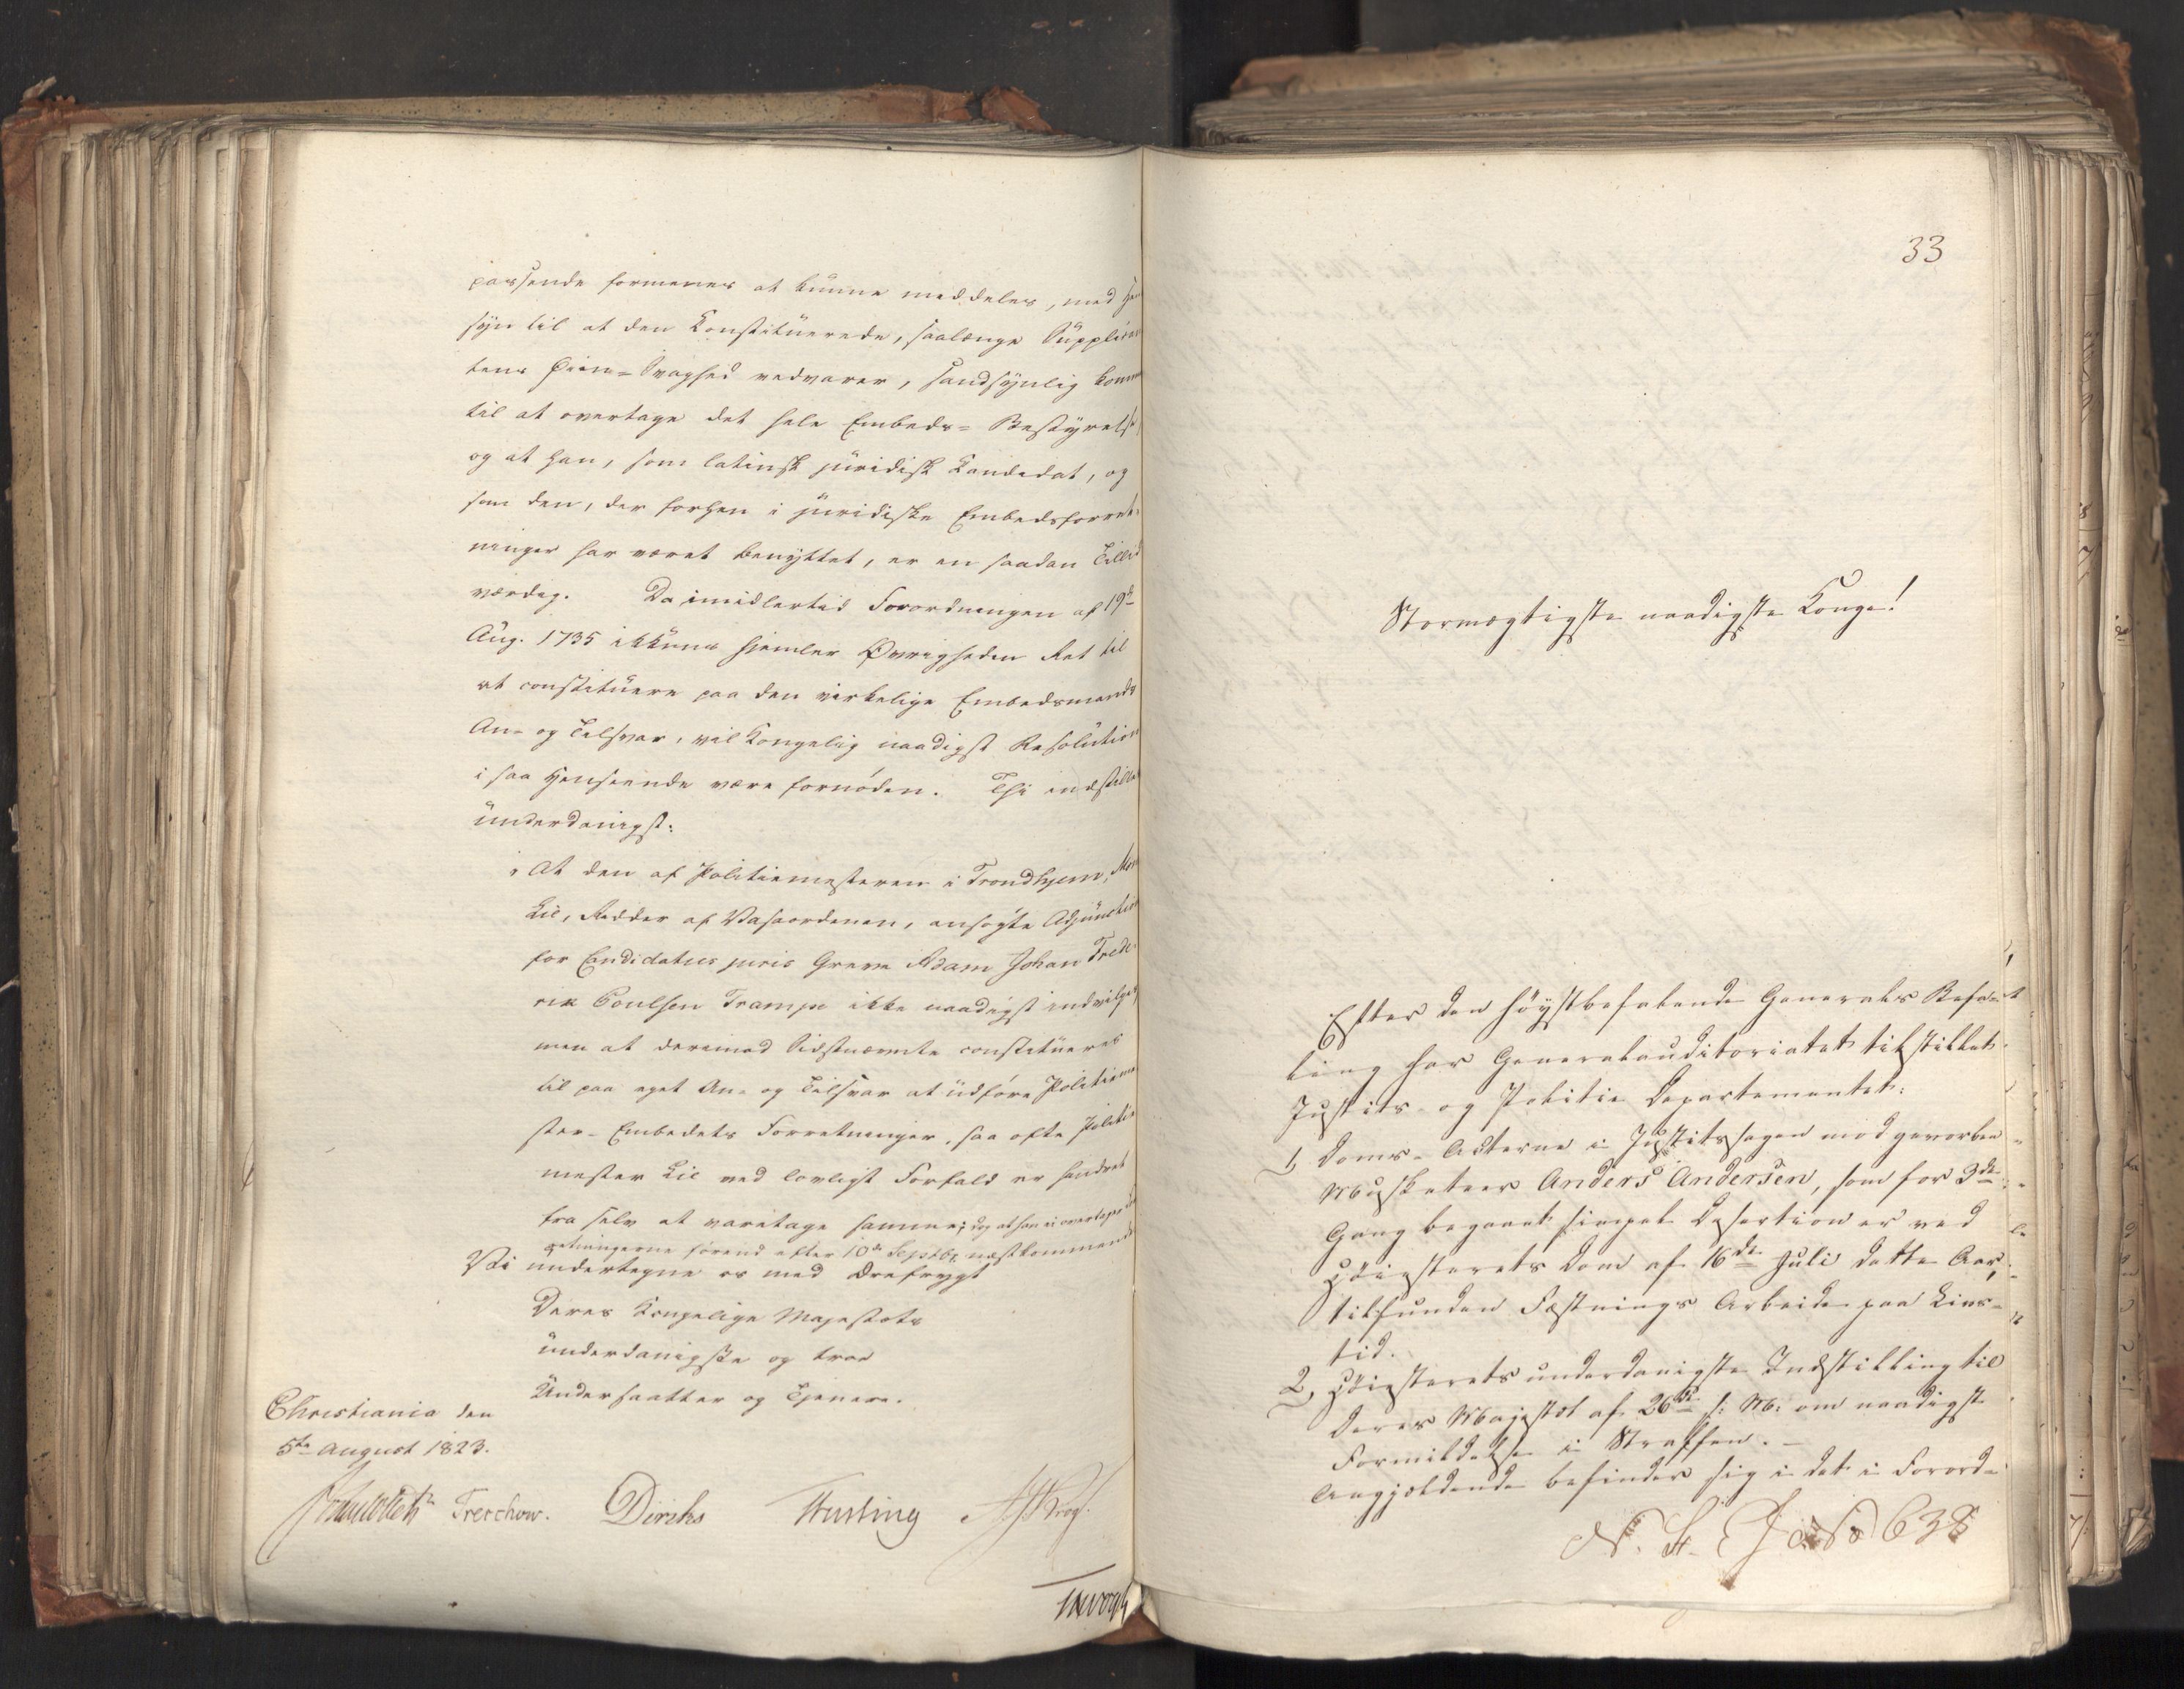 passende formenes at kunne meddeles, med Hen
syn til at den Constituerede, saalænge Supplican
tens Øien-Svaghed vedvarer, sandsynlig komm
til at overtage det hele Embeds-Bestyrelse
og at han, som latinsk juridisk Candidat, og
som den, der forhen i juridiske Embedsforret-
ninger har været benyttet, er en saadan Tillid
værdig. Da imidlertid Forordningen af 19de
Aug. 1735 ikkuns hjemler Øvrigheden Ret til
at constituere paa den virkelige Embedsmands
An- og Tilsvar, vil Kongelig naadigst Resolution
i saa Henseende være fornöden. Thi indstilles
underdanigst:
"At den af Politiemesteren i Trondhjem,
Lie, Ridder af Vasaordenen, ansögte Adjunction
for Candidatus juris Greve Adam Johan Frede-
rik Poulsen Trampe ikke naadigst indvilges,
men at derimod Sidstnævnte constitueres
til paa eget An- og Tilsvar at udföre Politieme
ster-Embedets Forretninger, saa ofte Politie
mester Lie ved lovligt Forfald er hindret
fra selv at varetage samme; dog at han ei overtager
retningerne forend efter 10de Septbr. næstkommende
Vi undertegne os med Ærefrygt
Deres Kongelige Majestæts
underdanigste og troe
Undersaatter og Tjenere.
Christiania den
5te August 1823.
Treschow. Diriks
33
Stormægtigste naadigste Konge!
Efter den höystbefalende Generals Befa-
ling har Generalauditoriatet tilstillet
Justits- og Politie Departementet:
1, Doms-Acterne i Justitssagen mod gevorben
Musketeer Anders Andersen, som for 3de
Gang begaaet simpel Desertion er ved
Höiesterets Dom af 16de Juli dette Aar,
tilfunden Fæstnings Arbeide paa Livs-
tid.
2, Höiesterets underdanigste Indstilling til
Deres Majestæt af 26de s: M: om naadigst
Formildelse i Straffen. -
Angjældende befinder sig i det i Forord-